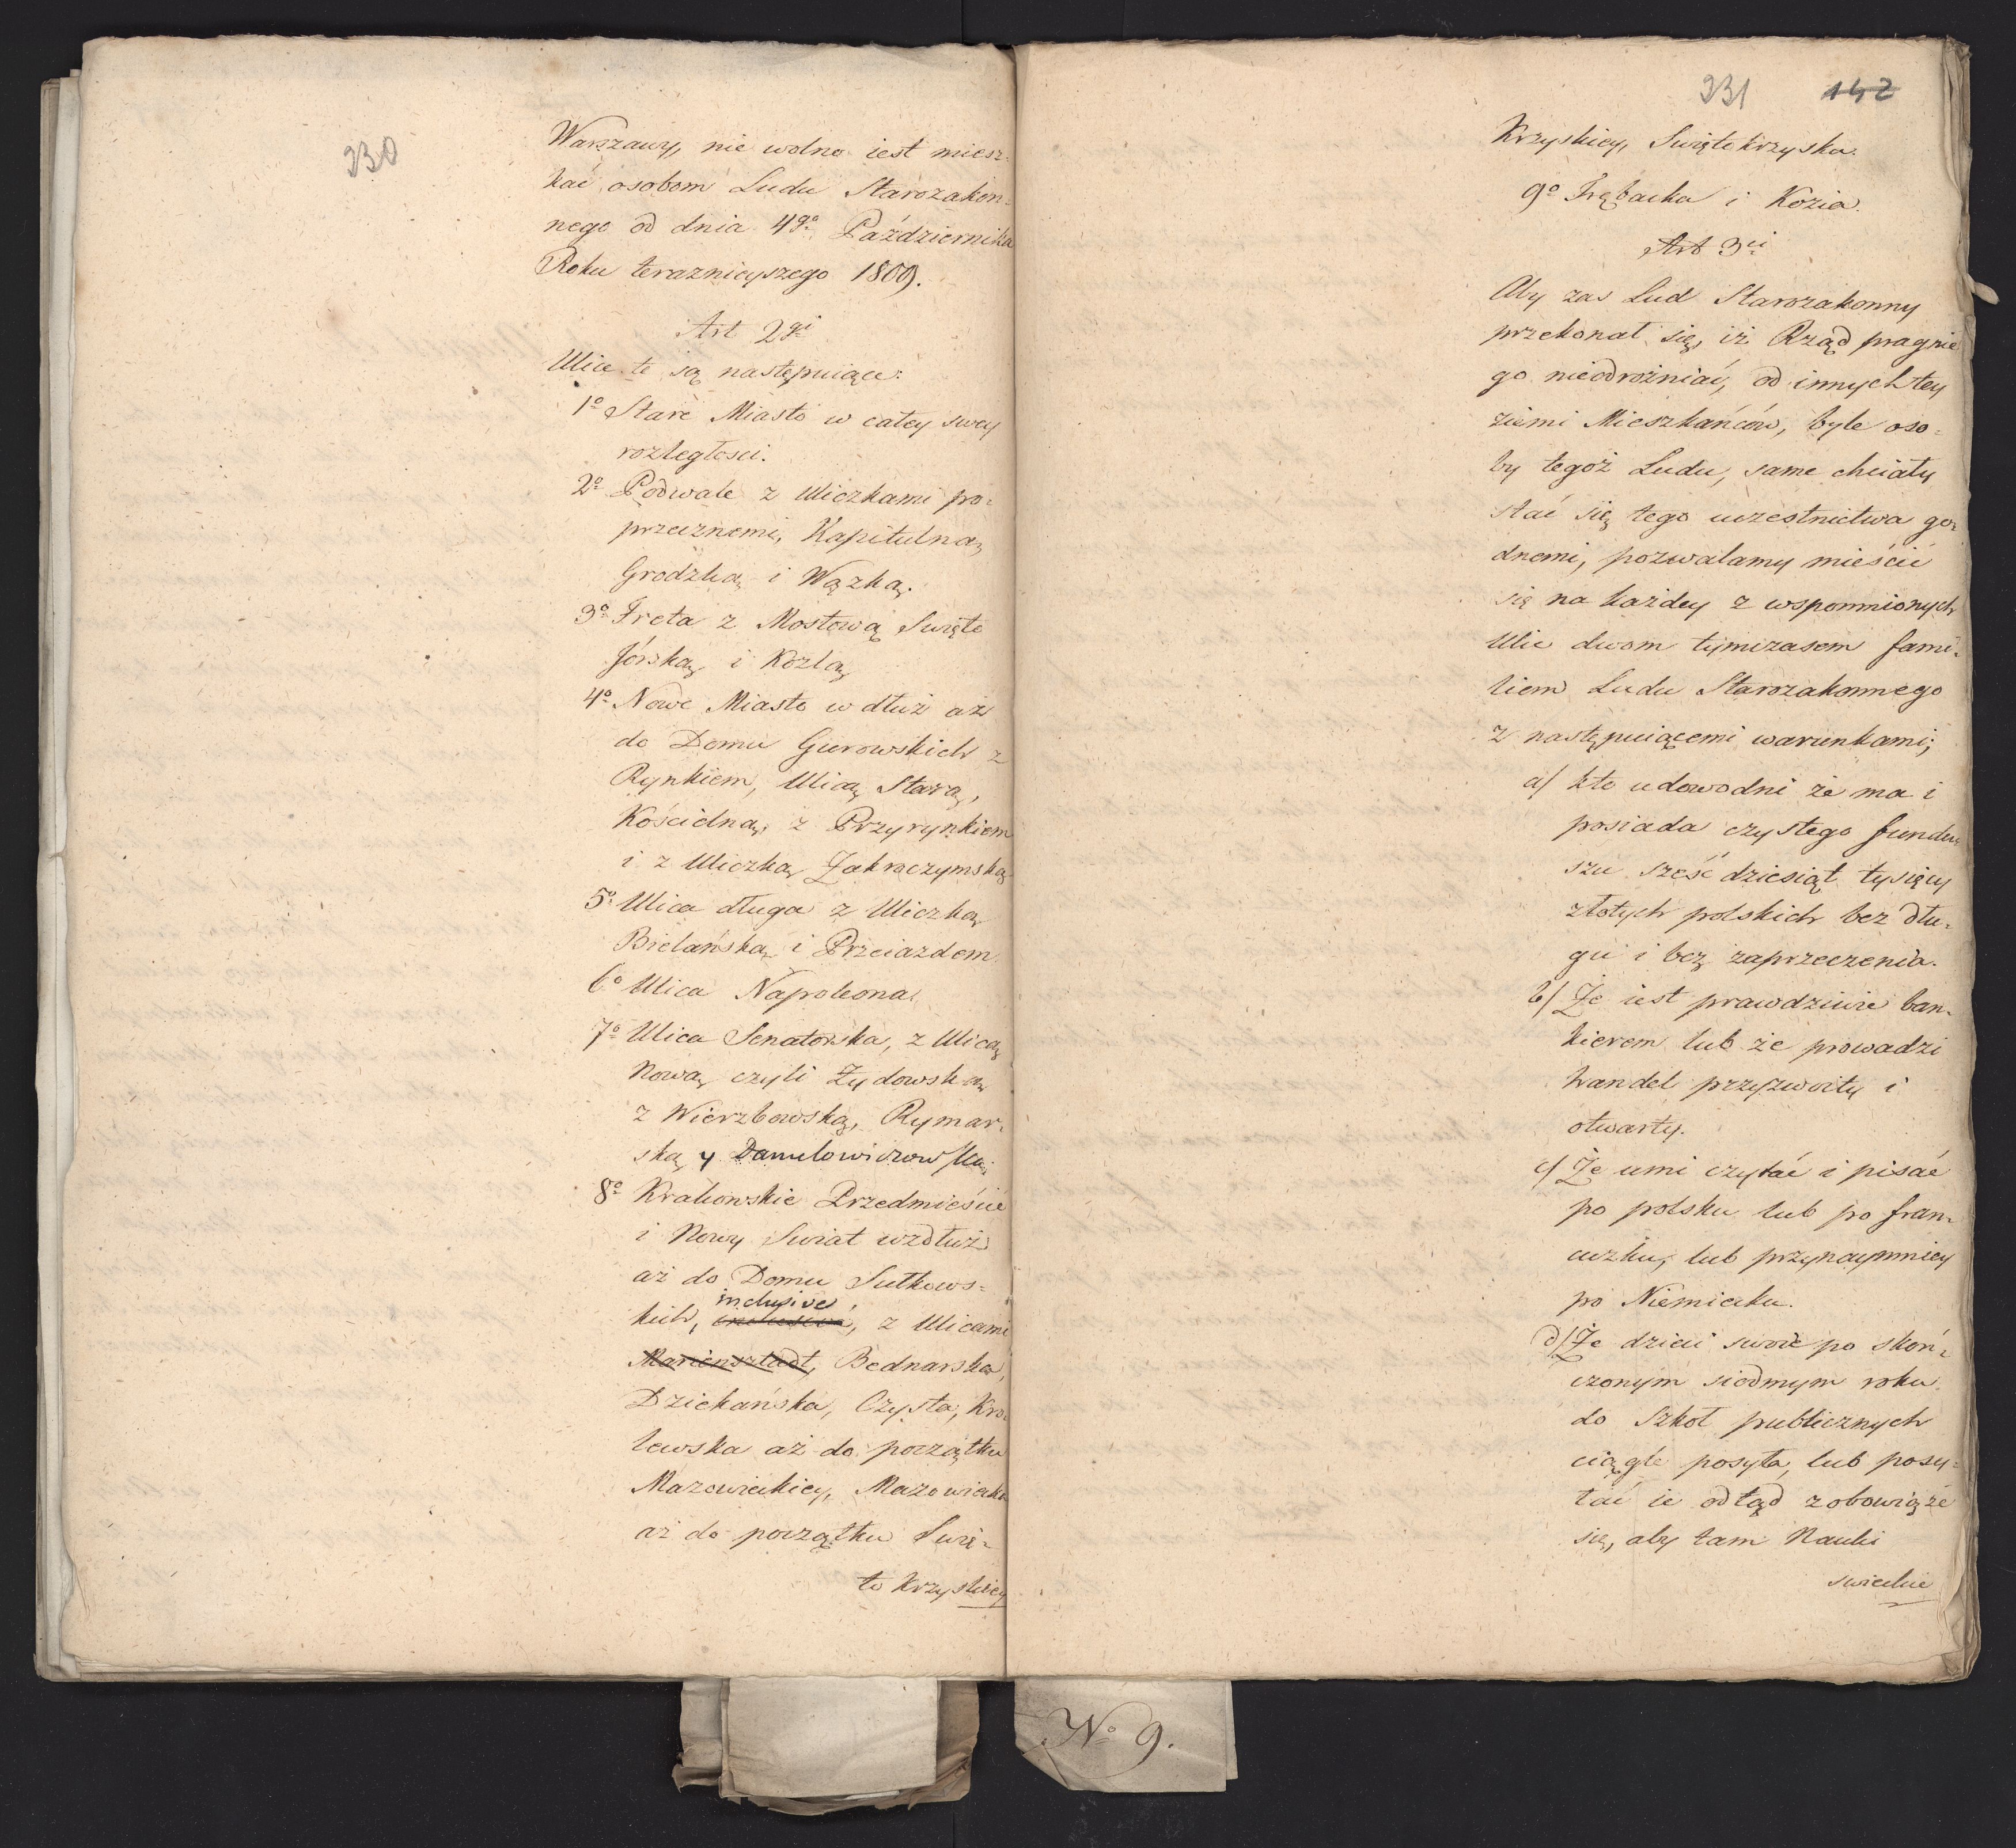 230
Warszawy, nie wolno iest miesz-
kać osobom Ludu Starozakon-
nego od dnia 4go Października
Roku teraznieyszego 1809.
Art 2gi
Ulice te są następuiące:
1o Stare Miasto w całey swey
rozległosci.
2o Podwale z Uliczkami po-
przecznemi, Kapitulną
Grodzką i Wązką.
3o Freta z Mostową Swięto
Jórską i Kozlą
4o Nowe Miasto w dłuż aż
do Domu Gurowskich z
Rynkiem, Ulicą Starą,
Kościelną, z Przyrynkiem
i z Uliczką Zakroczymską
5o Ulica długa z Uliczką
Bielańską i Przeiazdem
6o Ulica Napoleona
7o Ulica Senatorska, z Ulicą
Nową czyli Żydowską
z Wierzbowską, Rymar-
ską y Daniłowiczowską
8o Krakowskie Przedmieście
i Nowy Swiat wzdłuż
aż do Domu Sułkows-
inclusive
kich, exclusive, z Ulicami
Mariensztadt, Bednarska,
Dziekańska, Czysta, Kró-
lewska aż do początku
Mazowieckiey, Mazowiecka
aż do początku Swię-
to Krzyskiey
231 142
Krzyskiey, Swiętokrzyska.
9o Trębacka i Kozia.
Art 3ci
Aby zas Lud Starozakonny
przekonał się, iż Rząd pragnie
go nieodrożniać, od innych tey
ziemi Mieszkańców, byle oso-
by tegoż Ludu, same chciały
stać się tego uczestnictwa go-
dnemi, pozwalamy mieścić
się na każdey z wspomnionych
Ulic dwom tymczasem fami-
liom Ludu Starozakonnego
z następuiącemi warunkami;
a/ kto udowodni że ma i
posiada czystego fundu
szu sześćdziesiąt tysięcy
złotych polskich bez dłu-
gu i bez zaprzeczenia.
b/ Że iest prawdziwie ban-
kierem lub że prowadzi
handel przyzwoity i
otwarty.
c/ Że umi czytać i pisać
po polsku lub po fran-
cuzku, lub przynaymniey
po Niemiecku.
d/ Że dzieci swoie po skoń-
czonym siodmym roku
do Szkoł publicznych
ciągle posyła, lub posy-
łać ie odtąd zobowiąże
się, aby tam Nauki
swieckie
No 9.